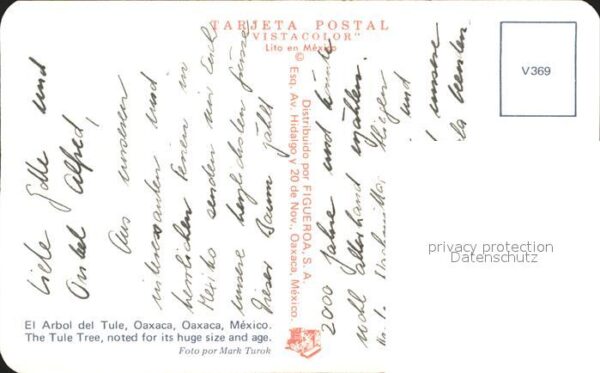 TARJETA POSTAL
"VISTACOLOR"
Lito en México
©
V369
Distribuido por FIGUEROA, S. A.
Esq. Av. Hidalgo y 20 de Nov., Oaxaca, México.
Liebe Gotte und
Onkel Alfred,
Aus unseren
interessanten und
herrlichen Ferien in
Mexiko senden wir Euch
unsere herzlichsten Grüsse
Dieser Baum zählt
2000 Jahre und könnte
wohl allerhand erzählen.
fliegen
und
unsere
El Arbol del Tule, Oaxaca, Oaxaca, México.
The Tule Tree, noted for its huge size and age.
Foto por Mark Turok
privacy protection
Datenschutz